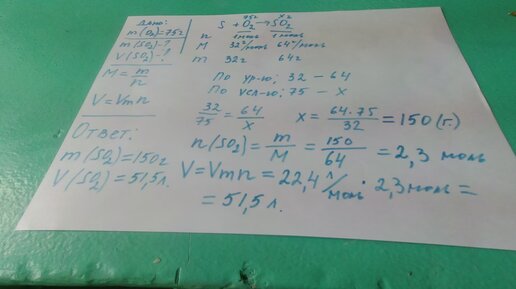 Дано:
m(O₂)=75г
m(SO₂)-?
V(SO₂)-?
M = m/n
V=Vmn
Ответ:
m(SO₂)=150г
V(SO₂)=51,5л.
75г xг
S + O₂ → SO₂
n 1моль 1моль
M 32г/моль 64г/моль
m 32г 64г
По ур-ю; 32 – 64
По усл-ю; 75 – x
32/75 = 64/x x = 64·75/32 = 150(г.)
n(SO₂) = m/M = 150/64 = 2,3 моль
V=Vmn = 22,4 л/моль · 2,3моль =
= 51,5л.